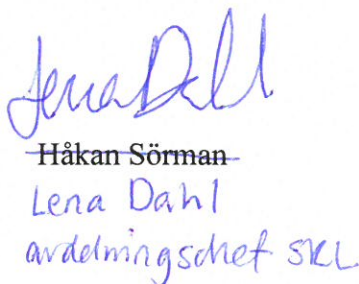 Lena Dahl
Håkan Sörman
Lena Dahl
avdelningschef SKL